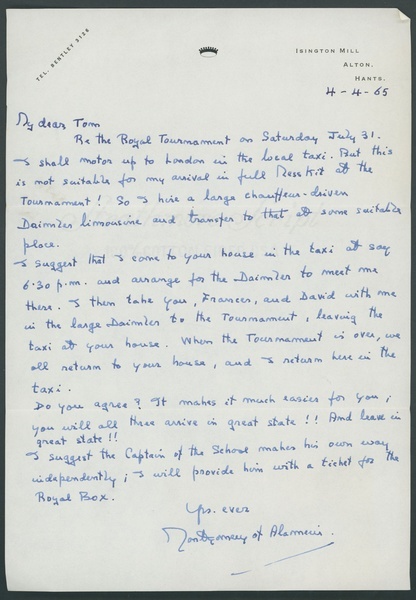 TEL. BENTLEY 2126
ISINGTON MILL
ALTON.
HANTS.
4-4-65
My dear Tom
Re the Royal Tournament on Saturday July 31.
I shall motor up to London in the local taxi. But this
is not suitable for my arrival in full Mess Kit at the
Tournament! So I hire a large chauffeur-driven
Daimler limousine and transfer to that at some suitable
place.
I suggest that I come to your house in the taxi at say
6.30 p.m. and arrange for the Daimler to meet me
there. I then take you, Frances, and David with me
in the large Daimler to the Tournament, leaving the
taxi at your house. When the Tournament is over, we
all return to your house, and I return here in the
taxi.
Do you agree? It makes it much easier for you;
you will all three arrive in great state!! And leave in
great state!!
I suggest the Captain of the School makes his own way
independently; I will provide him with a ticket for the
Royal Box.
Yrs. ever
Montgomery of Alamein.